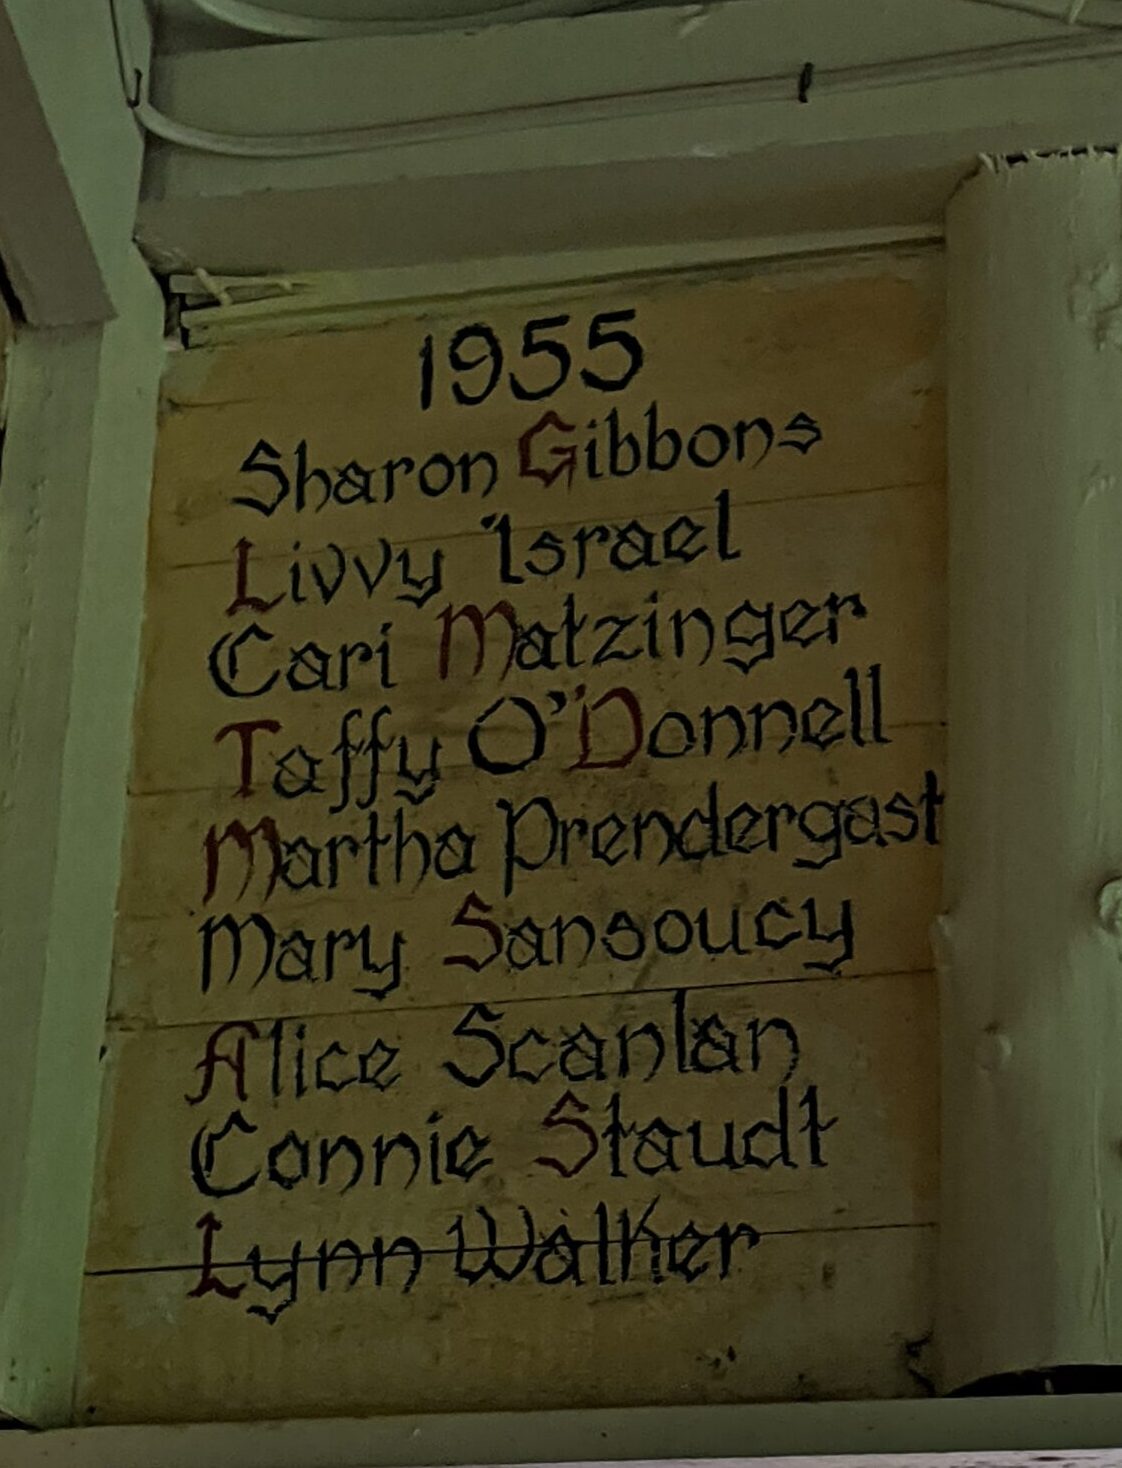 1955
Sharon Gibbons
Livvy Israel
Cari Matzinger
Taffy O'Donnell
Martha Prendergast
Mary Sansoucy
Alice Scanlan
Connie Staudt
Lynn Walker